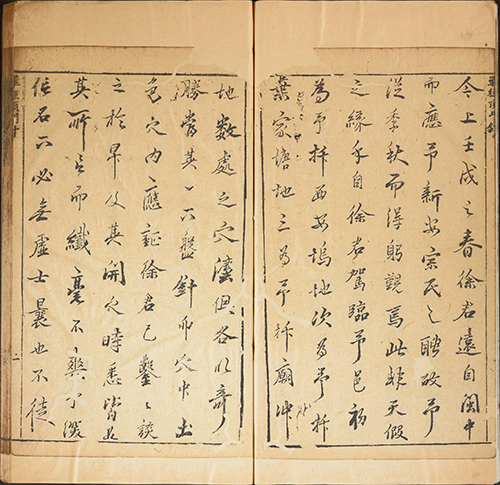 今上壬戌之春徐君遠自閩中
而應予新安宗民之聘故予
從季秋而得躬觀焉此天假
之緣乎自徐君駕臨予邑初
為予拆西安塢地次為予拆
葉家塘地三為予拆廟冲
地數處之穴俱各以奇
勝當其一〃盤針穴中土
色穴內〃應証徐君已鑿〃談
之於早及其開穴時悉皆如
其所言而纖毫不〃爽予深
信名下必無虛士曩也不徒